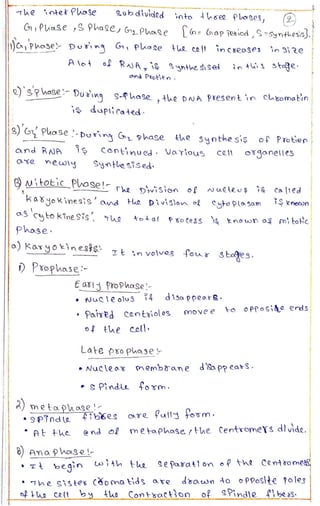 The interphase subdivided into three Phases,
②
G₁ Phase, S Phase, G₂ Phase [G = Gap Period, S = Synthesis].
1) G₁ Phase:- During G₁ phase the cell increases in size
A lot of RNA, is synthesised in this stage.
and Protien.
2) 's' phase:- During s-phase, the DNA present in chromatin
is duplicated.
3) 'G₂' Phase:- During G₂ phase the synthesis of Protien
and RNA is continued. Various cell organelles
are newly synthesised.
B) Mitotic Phase:- The Division of Nucleus is called
'karyokinesis' and the Division of cytoplasm is known
as 'cytokinesis'. The total process is known as mitotic
phase.
a) Karyokinesis: It involves four stages.
1) Prophase:-
Early Prophase:-
• Nucleolus is disappears.
• Paired centrioles movee to opposite ends
of the cell.
Late prophase:-
• Nuclear membrane disappears.
• Spindle form.
2) metaphase:-
• Spindle fibires are fully form.
• At the end of metaphase, the centromers divide.
3) Anaphase:-
• It begin with the separation of the centromers
• The sister cromatids are drawn to opposite poles
of the cell by the contraction of spindle fibers.